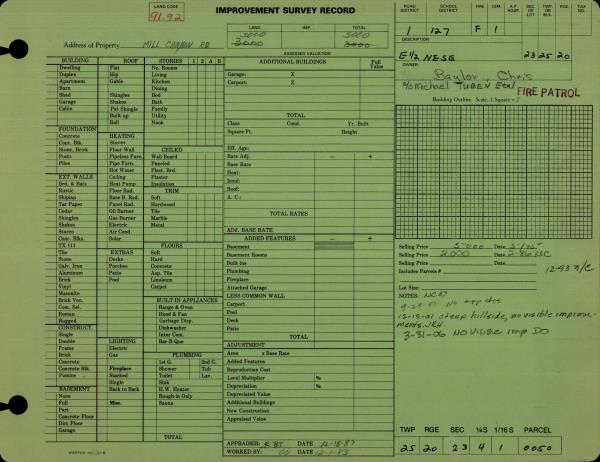 LAND CODE
91-92
IMPROVEMENT SURVEY RECORD
LAND IMP. TOTAL
5000 5000
3000 3000
ASSESSED VALUATION
Address of Property MILL CANYON RD
ROAD DISTRICT SCHOOL DISTRICT FIRE CEM. A.P. HOSP. SEC OR LOT TWP. OR BLK. RGE. TAX NO.
1 127 F 1
E½ NESE 23 25 20
DESCRIPTION
OWNER
Baylor, Chris
c/o Michael TUBEN Etal
FIRE PATROL
Building Outline Scale, 1 Square =
BUILDING ROOF STORIES 1 2 A B
Dwelling Flat No. Rooms
Duplex Hip Living
Apartment Gable Kitchen
Barn Dining
Shed Shingles Bed
Garage Shakes Bath
Cabin Pat Shingle Family
Built-up Utility
Roll Nook
FOUNDATION
Concrete HEATING
Conc. Blk. Stoves
Stone, Brick Floor-Wall CEILED
Posts Pipeless Furn. Wall Board
Piles Pipe Furn. Paneled
Hot Water Plast. Brd.
EXT. WALLS Ceiling Plaster
Brd. & Bats Heat Pump Insulation
Rustic Floor Rad. TRIM
Shiplap Base B. Rad. Soft
Tar Paper Panel Rad. Hardwood
Cedar Oil Burner Tile
Shingles Gas Burner Marble
Shakes Electric Metal
Stucco Air Cond.
Conc. Blks. Solar
TX-111 FLOORS
Tile EXTRAS Soft
Stone Decks Hard
Galv. Iron Porches Concrete
Aluminum Patio Asp. Tile
Brick Pool Linoleum
Vinyl Carpet
Masonite
Brick Ven. BUILT-IN APPLIANCES
Com. Sel. Range & Oven
Roman Hood & Fan
Rugged Garbage Disp.
CONSTRUCT. Dishwasher
Single Inter Com.
Double LIGHTING Bar-B-Que
Frame Electric
Brick Gas PLUMBING
Concrete 1st G. 2nd G.
Conc. Blk. Fireplace Shower Tub
Pumice Stacked Toilet Lav.
Single Sink
BASEMENT Back to Back H.W. Heater
None Rough-in Only
Full Misc. Sauna
Part
Concrete Floor
Dirt Floor
Garage TOTAL
ADDITIONAL BUILDINGS Full Value
Garage: X
Carport: X
TOTAL BUILDINGS
Class Cond. Yr. Built
Square Ft. Height
Eff. Age:
Rate Adj. - +
Base Rate
Heat:
Insul:
Roof:
A. C.:
TOTAL RATES
ADJ. BASE RATE
ADDED FEATURES - +
Basement
Basement Rooms
Built-ins
Plumbing
Fireplace
Attached Garage
LESS COMMON WALL
Carport
Pool
Deck
Patio
TOTAL
ADJUSTMENT
Area x Base Rate
Added Features
Reproduction Cost
Local Multiplier %
Depreciation %
Depreciated Value
Additional Buildings
New Construction
Appraised Value
APPRAISER: DATE 12-18-87
WORKED BY: DATE 12-1-83
Selling Price 5000 Date 5/75
Selling Price 2,000 Date
Selling Price Date
Includes Parcels # 12-93 n/c
Lot Size:
NOTES: NC87
steep hillside, no visible improvements. JRH.
3-31-06 NO Visible imp DO
TWP RGE SEC ¼S 1/16 S PARCEL
25 20 23 4 1 0050